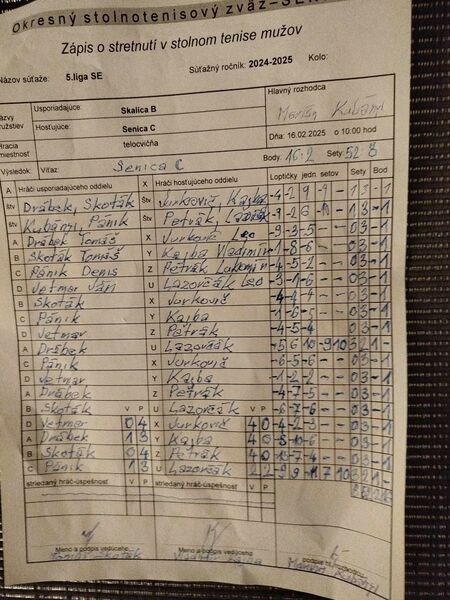 Okresný stolnotenisový zväz–SEN
Zápis o stretnutí v stolnom tenise mužov
Názov súťaže: 5.liga SE Súťažný ročník: 2024-2025 Kolo:
Názvy družstiev Usporiadajúce: Skalica B Hlavný rozhodca
Hosťujúce: Senica C Marián Kubáni
Hracia miestnosť telocvičňa Dňa: 16.02.2025 o 10:00 hod
Výsledok: Víťaz: Senica C Body: 16:2 Sety: 52 8
A Hráči usporiadajúceho oddielu X Hráči hosťujúceho oddielu Loptičky jedn. setov Sety Bod
štv Drábek, Skoták štv Jurkovič, Kajba -4 -2 9 -9 1 3 -1
štv Kubáni, Pánik štv Petrák, Lazorčák 1 3 -1
A Drábek Tomáš X Jurkovič Leo -9 -3 -5 0 3 -1
B Skoták Tomáš Y Kajba Vladimír -1 -8 -6 0 3 -1
C Pánik Denis Z Petrák -4 -5 -2 0 3 -1
D Vetmar Ján U Lazorčák Leo -3 -1 -6 0 3 -1
B Skoták X Jurkovič -4 -4 -4 0 3 -1
C Pánik Y Kajba -1 -6 -5 0 3 -1
D Vetmar Z Petrák -4 -5 -4 0 3 -1
A Drábek U Lazorčák -5 6 10 -9 10 3 2 1
C Pánik X Jurkovič -6 -5 -6 0 3 -1
D Vetmar Y Kajba -1 -2 -2 0 3 -1
A Drábek Z Petrák -4 -7 -5 0 3 -1
B Skoták V P U Lazorčák V P -6 -7 -6 0 3 -1
D Vetmar 0 4 X Jurkovič 4 0 -4 -2 -3 0 3 -1
A Drábek 1 3 Y Kajba 4 0 0 3 -1
B Skoták 0 4 Z Petrák 4 0 0 3 -1
C Pánik 1 3 U Lazorčák 2 2 3
striedaný hráč-úspešnosť V P striedaný hráč-úspešnosť V P
Meno a podpis vedúceho Meno a podpis vedúceho
Tomáš Skoták Vladimír Kajba Marián Kubáni